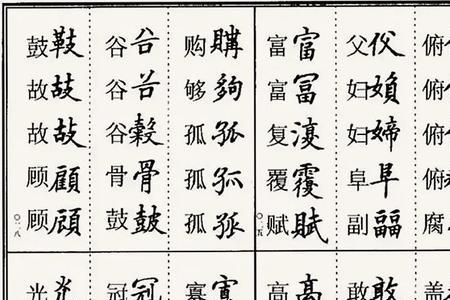 俯
俯
俯
俯
腐
父
妇媍
妇婦
阜阜
副
富富
富冨
复復
覆覆
赋賦
〇一五
购購
够夠
孤孤
孤孤
孤孤
谷谷
谷谷
谷穀
骨骨
鼓皷
鼓
故故
故故
顾顧
顾頋
〇一八
盖
敢敢
高高
寡
冠冠
光光